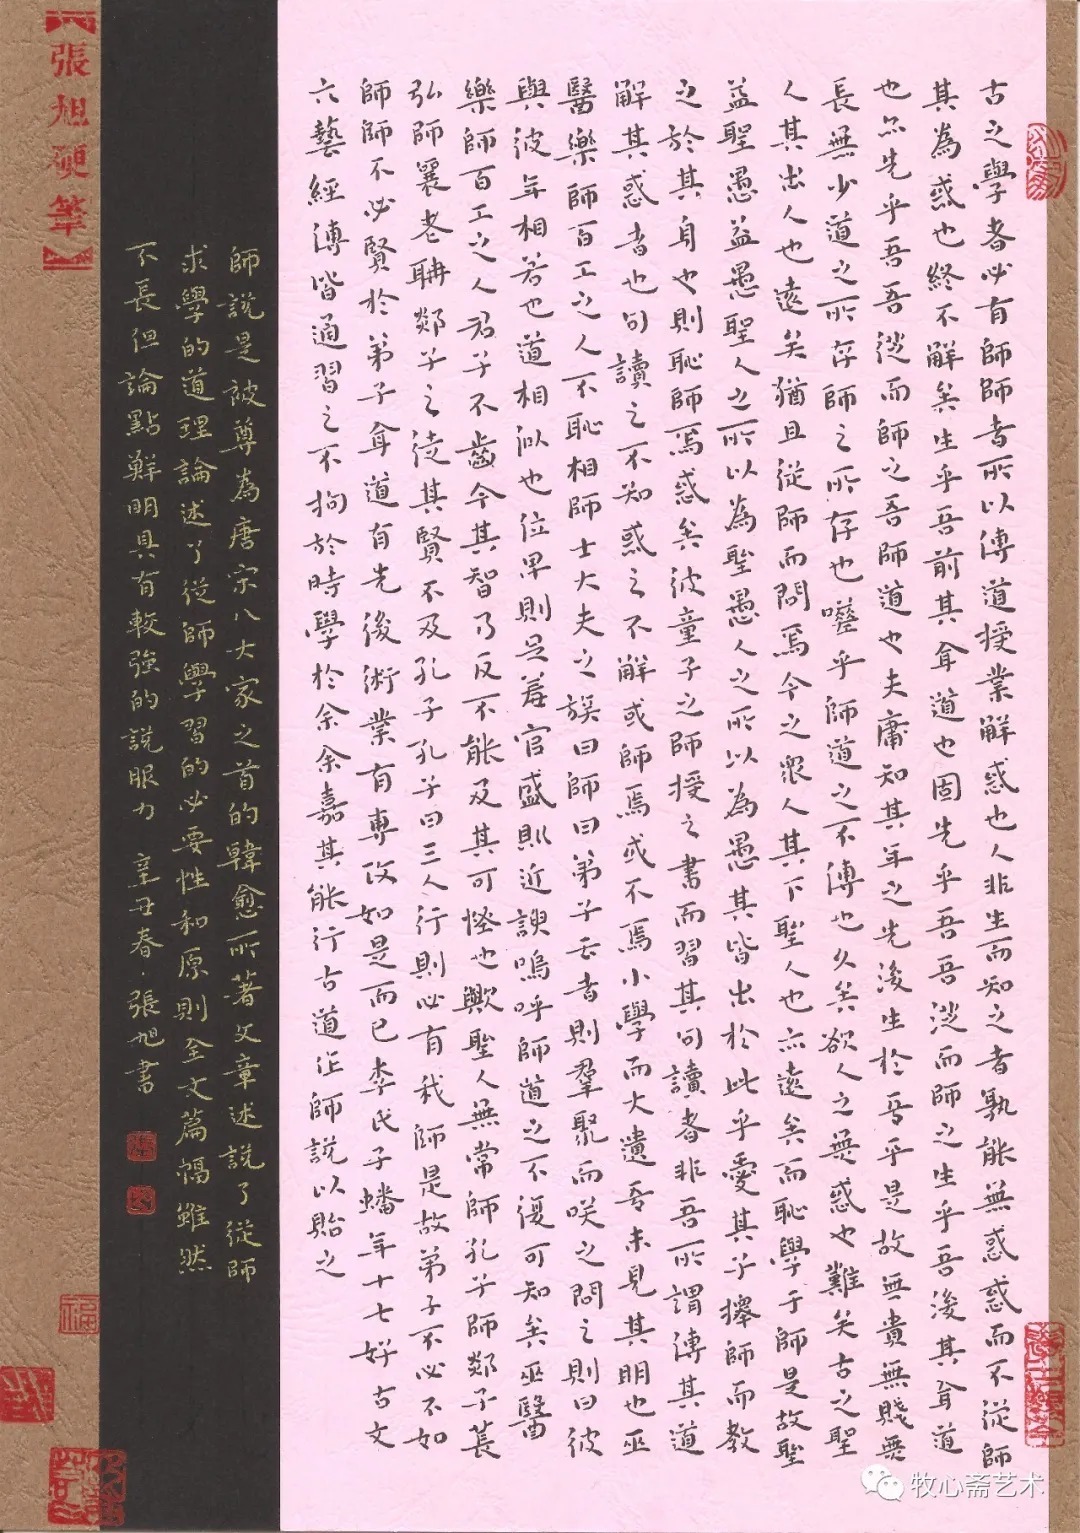 古之學者必有師師者所以傳道授業解惑也人非生而知之者孰能無惑惑而不從師
其為惑也終不解矣生乎吾前其聞道也固先乎吾吾從而師之生乎吾後其聞道
也亦先乎吾吾從而師之吾師道也夫庸知其年之先後生於吾乎是故無貴無賤無
長無少道之所存師之所存也嗟乎師道之不傳也久矣欲人之無惑也難矣古之聖
人其出人也遠矣猶且從師而問焉今之眾人其下聖人也亦遠矣而恥學于師是故聖
益聖愚益愚聖人之所以為聖愚人之所以為愚其皆出於此乎愛其子擇師而教
之於其身也則恥師焉惑矣彼童子之師授之書而習其句讀者非吾所謂傳其道
解其惑者也句讀之不知惑之不解或師焉或不焉小學而大遺吾未見其明也巫
醫樂師百工之人不恥相師士大夫之族曰師曰弟子云者則羣聚而咲之問之則曰彼
與彼年相若也道相似也位卑則足羞官盛則近諛嗚呼師道之不復可知矣巫醫
樂師百工之人君子不齒今其智乃反不能及其可怪也歟聖人無常師孔子師郯子萇
弘師襄老聃郯子之徒其賢不及孔子孔子曰三人行則必有我師是故弟子不必不如
師師不必賢於弟子聞道有先後術業有專攻如是而已李氏子蟠年十七好古文
六藝經傳皆通習之不拘於時學於余余嘉其能行古道作師說以貽之
師說是被尊為唐宋八大家之首的韓愈所著文章述說了從師
求學的道理論述了從師學習的必要性和原則全文篇幅雖然
不長但論點鮮明具有較強的說服力 辛丑春·張旭書
【張旭硬筆】
福
牧心斋艺术